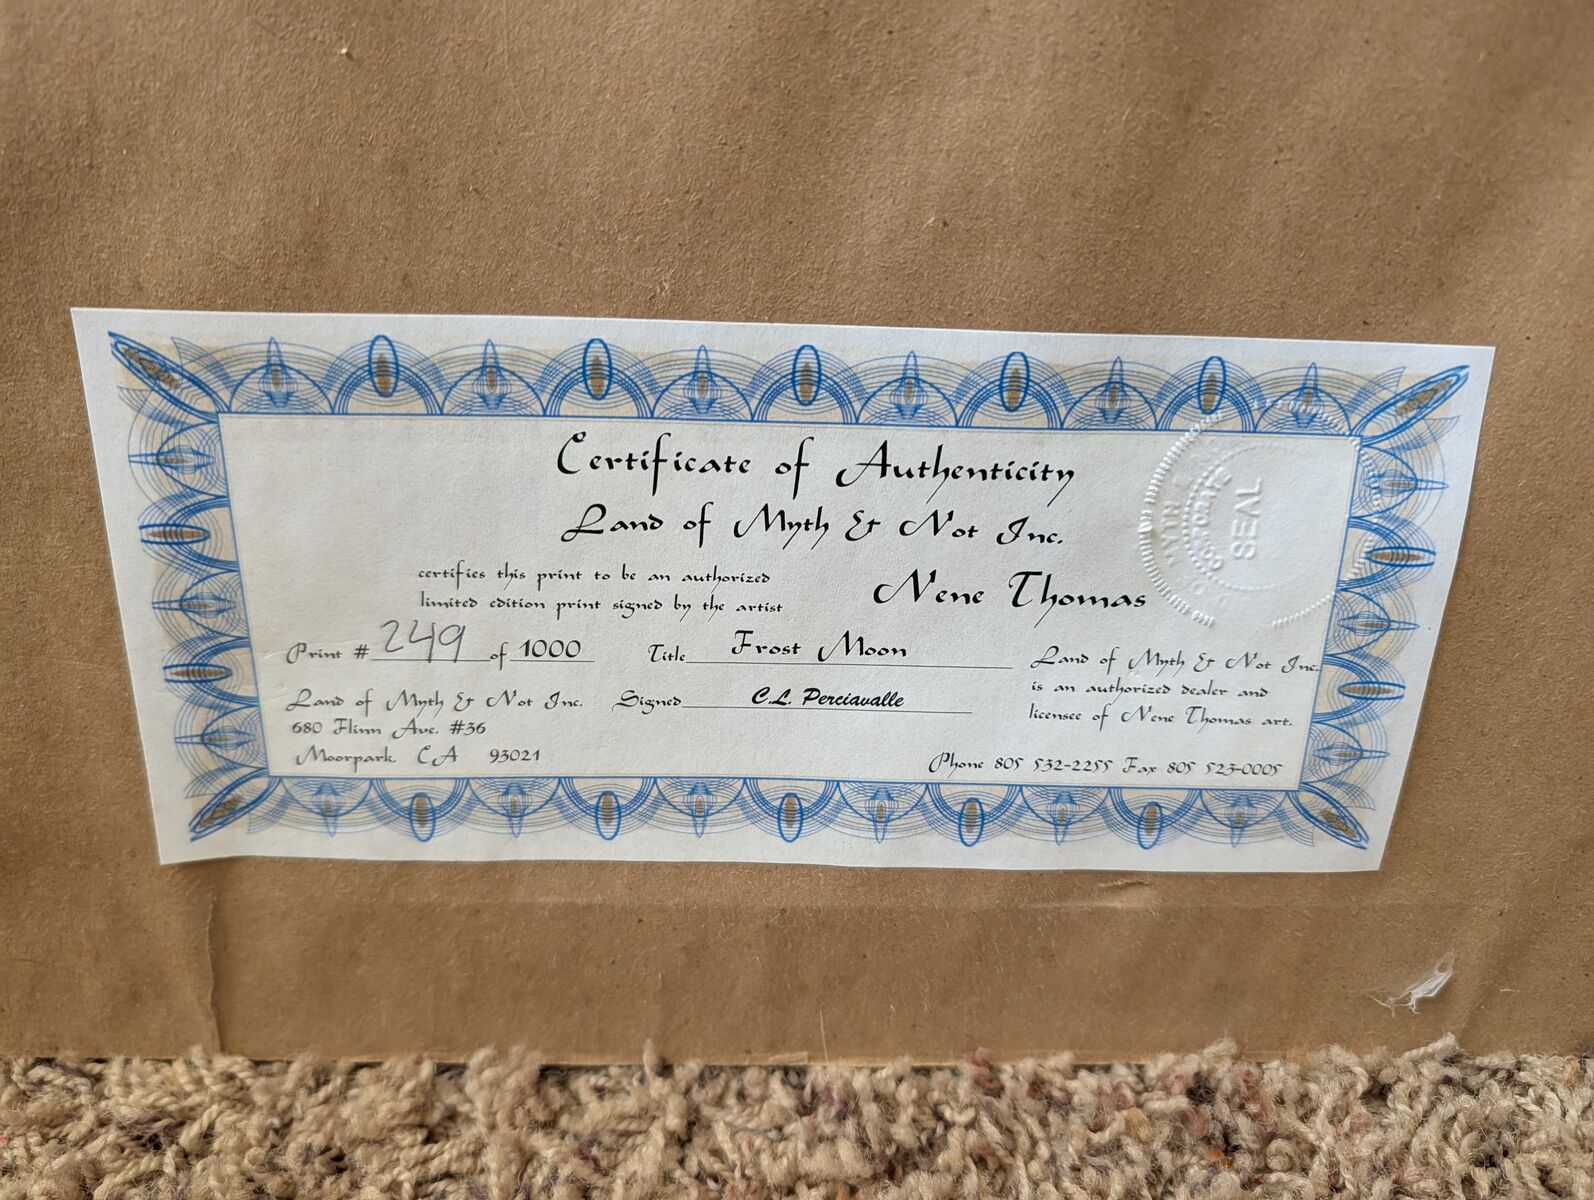 Certificate of Authenticity
Land of Myth & Not Inc.
certifies this print to be an authorized
limited edition print signed by the artist
Nene Thomas
Print # 249 of 1000 Title Frost Moon
Land of Myth & Not Inc.
680 Flinn Ave. #36
Moorpark, CA 93021
Signed C.L. Perciavalle
Land of Myth & Not Inc.
is an authorized dealer and
licensee of Nene Thomas art.
Phone 805 532-2255 Fax 805 523-0005
CORPORATE
SEAL